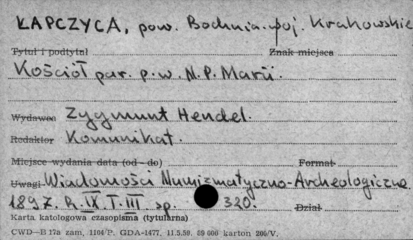 ŁAPCZYCA, pow. Bochnia. woj. Krakowskie
Tytuł i podtytuł Znak miejsca
Kościół par. p.w. N.P. Marii.
Wydawca Zygmunt Hendel.
Redaktor Komunikat.
Miejsce wydania data (od - do) Format
Uwagi Wiadomości Numizmatyczno-Archeologiczne
1897. R. IX. T. III sp. 320. Dział
Karta katologowa czasopisma (tytularna)
CWD—B 17a zam. 1104/P. GDA-1477. 11.5.59. 60 000 karton 200/V.